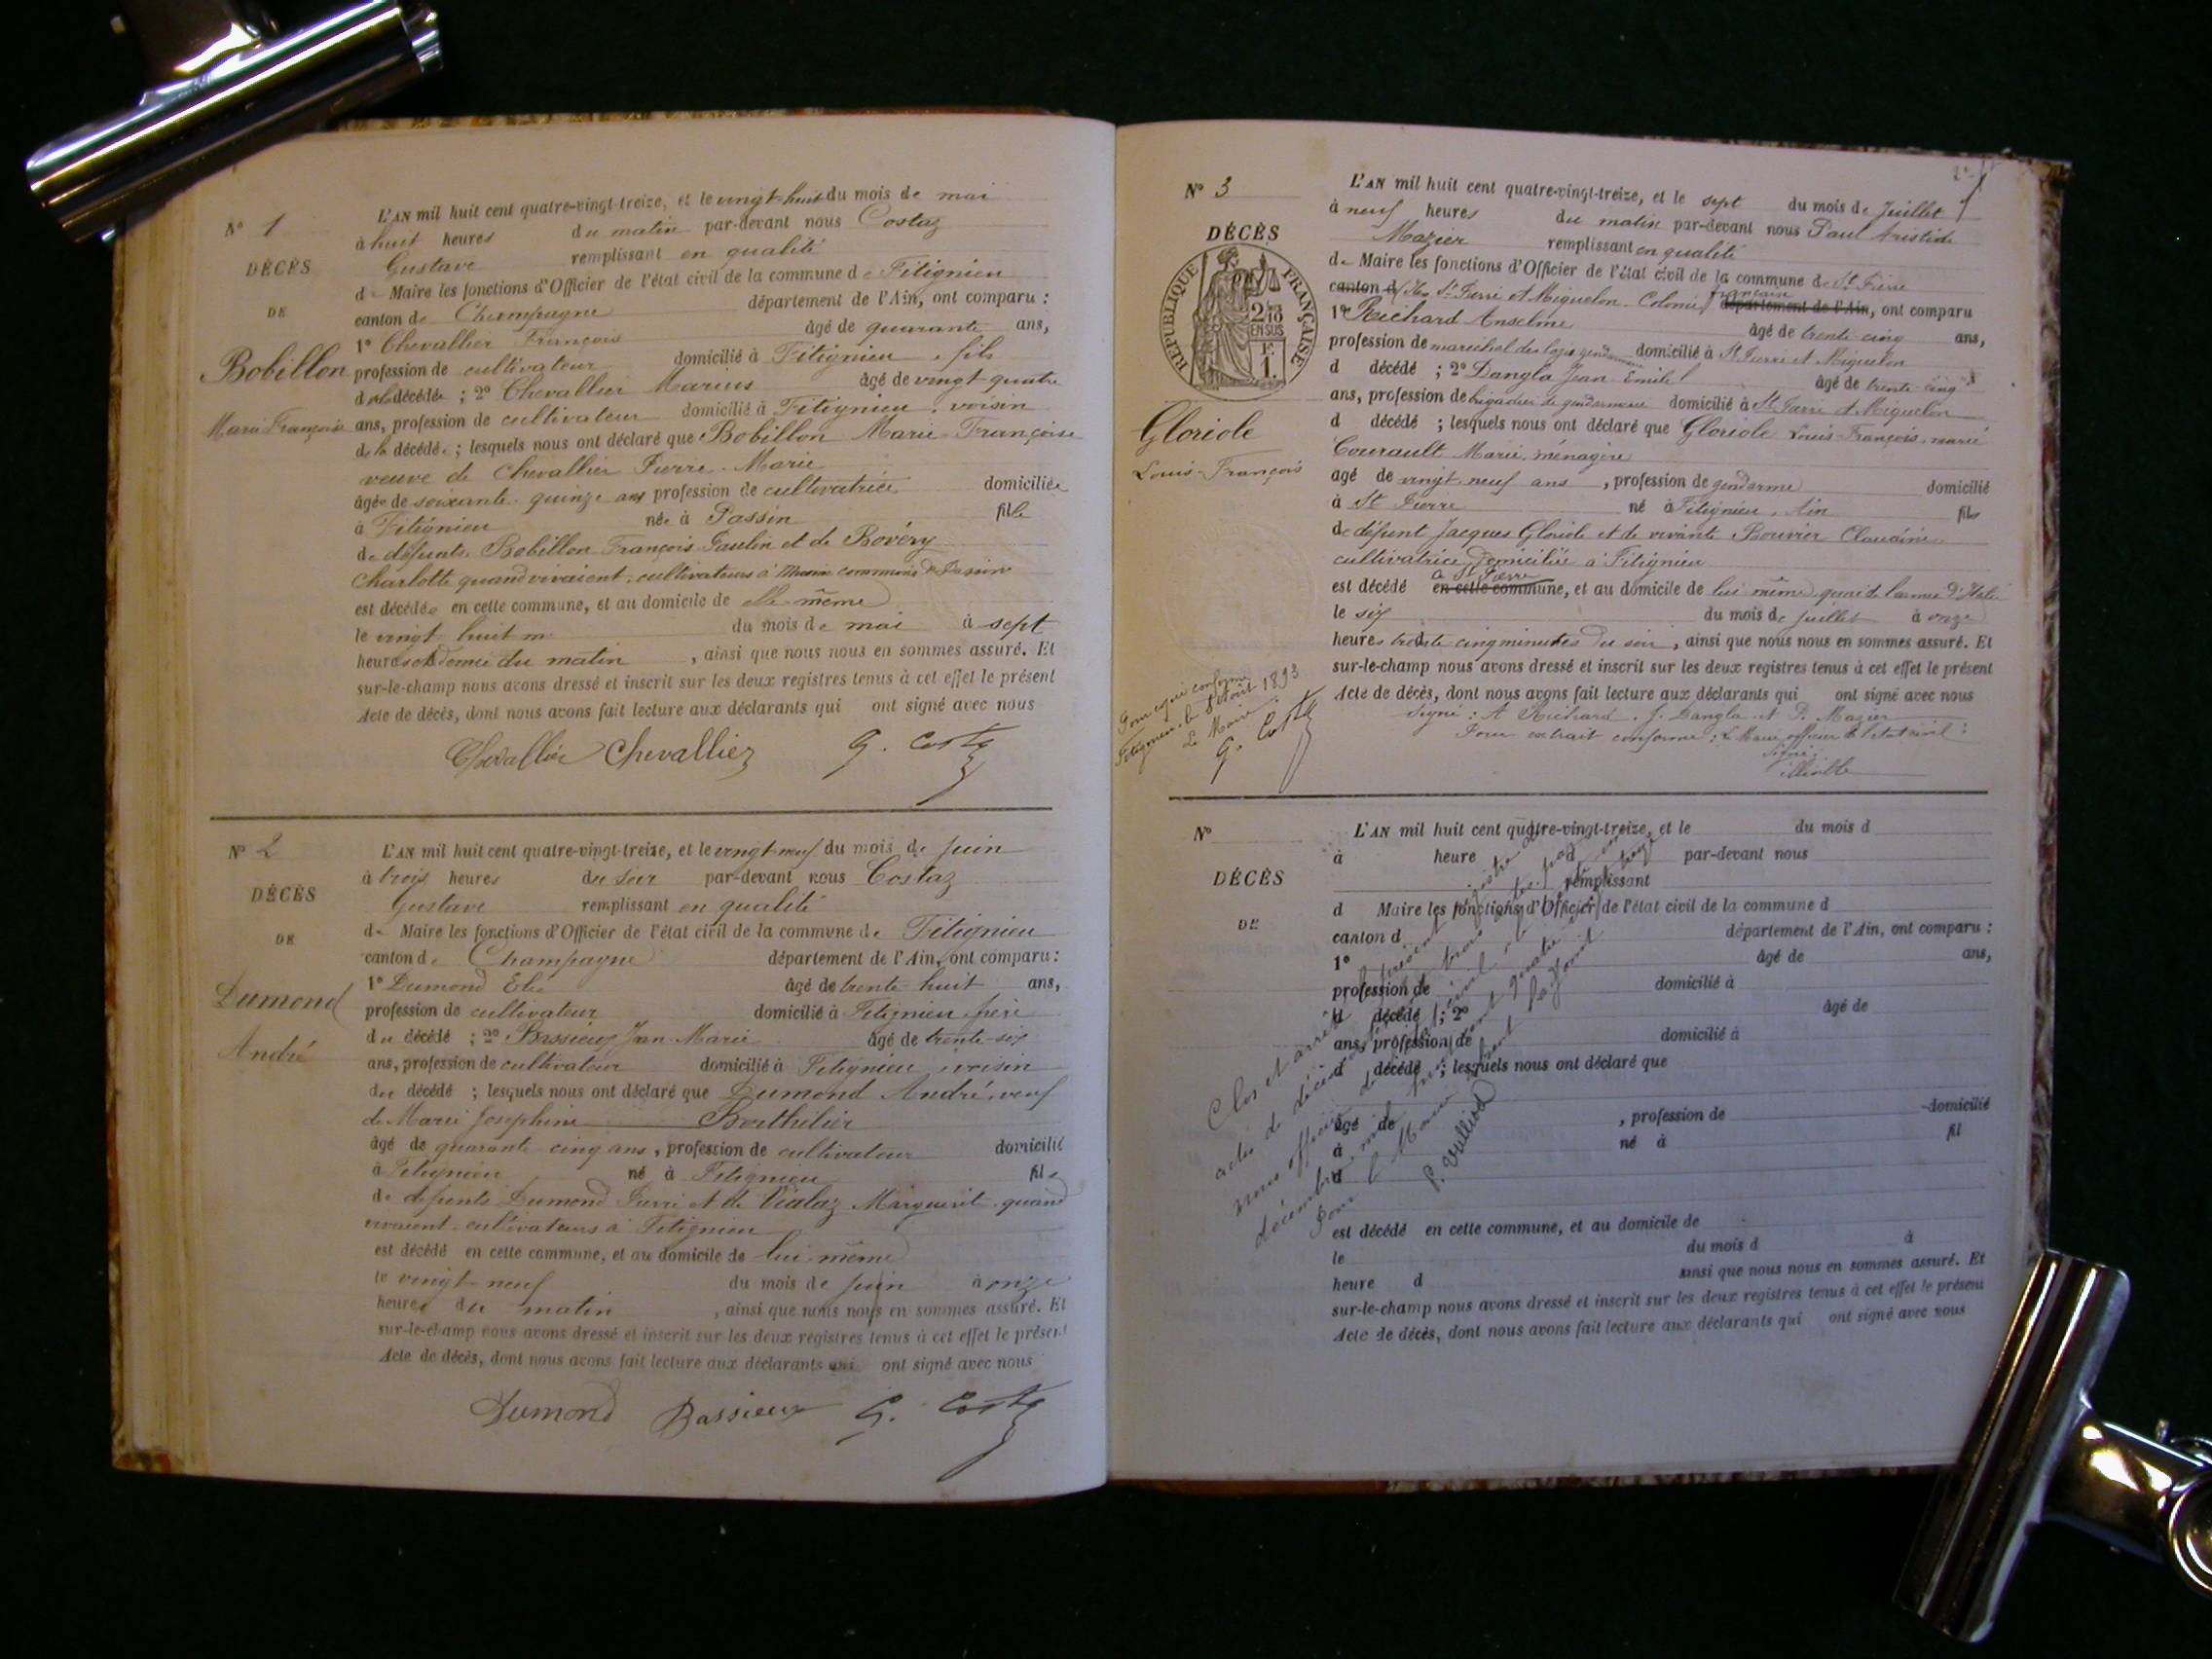 N° 1
DÉCÈS
DE
Bobillon
Marie Françoise
L'AN mil huit cent quatre-vingt-treize, et le vingt-huit du mois de mai
à huit heures du matin par-devant nous Costaz
Gustave remplissant en qualité
de Maire les fonctions d'Officier de l'état civil de la commune de Fitignieu
canton de Champagne département de l'Ain, ont comparu :
1° Chevallier François âgé de quarante ans,
profession de cultivateur domicilié à Fitignieu, fils
de la décédée ; 2° Chevallier Marius âgé de vingt-quatre
ans, profession de cultivateur domicilié à Fitignieu, voisin
de la décédée ; lesquels nous ont déclaré que Bobillon Marie-Françoise
veuve de Chevallier Pierre-Marie
âgée de soixante-quinze ans profession de cultivatrice domiciliée
à Fitignieu née à Passin fille
de défunts Bobillon François Paulin et de Rovéry
Charlotte quand vivaient cultivateurs à commune de Passin
est décédée en cette commune, et au domicile de elle même
le vingt huit du mois de mai à sept
heures et demie du matin, ainsi que nous nous en sommes assuré. Et
sur-le-champ nous avons dressé et inscrit sur les deux registres tenus à cet effet le présent
Acte de décès, dont nous avons fait lecture aux déclarants qui ont signé avec nous
Chevallier Chevallier G. Costaz
N° 2
DÉCÈS
DE
Dumond
André
L'AN mil huit cent quatre-vingt-treize, et le vingt-neuf du mois de juin
à trois heures du soir par-devant nous Costaz
Gustave remplissant en qualité
de Maire les fonctions d'Officier de l'état civil de la commune de Fitignieu
canton de Champagne département de l'Ain, ont comparu :
1° Dumond Elie âgé de trente-huit ans,
profession de cultivateur domicilié à Fitignieu, frère
du décédé ; 2° Bassieux Jean-Marie âgé de trente-six
ans, profession de cultivateur domicilié à Fitignieu, voisin
du décédé ; lesquels nous ont déclaré que Dumond André, veuf
de Marie Joséphine Berthelier
âgé de quarante cinq ans, profession de cultivateur domicilié
à Fitignieu né à Fitignieu fils
de défunts Dumond Pierre et de Vialaz Marguerite quand
vivaient cultivateurs à Fitignieu
est décédé en cette commune, et au domicile de lui-même
le vingt-neuf du mois de juin à onze
heures du matin, ainsi que nous nous en sommes assuré. Et
sur-le-champ nous avons dressé et inscrit sur les deux registres tenus à cet effet le présent
Acte de décès, dont nous avons fait lecture aux déclarants qui ont signé avec nous
Dumond Bassieux G. Costaz
N° 3
DÉCÈS
RÉPUBLIQUE FRANÇAISE
2/10 EN SUS
F. 1.
Gloriole
Louis-François
L'AN mil huit cent quatre-vingt-treize, et le sept du mois de Juillet
à neuf heures du matin par-devant nous Paul Aristide
Mazier remplissant en qualité
de Maire les fonctions d'Officier de l'état civil de la commune de St Pierre
canton d Iles St Pierre et Miquelon Colonie française département de l'Ain, ont comparu
1° Richard Anselme âgé de trente-cinq ans,
profession de maréchal des logis gendarmerie domicilié à St Pierre et Miquelon
d décédé ; 2° Dangla Jean Emile âgé de trente-cinq
ans, profession de brigadier de gendarmerie domicilié à St Pierre et Miquelon
d décédé ; lesquels nous ont déclaré que Gloriole Louis-François, marié
Courault Marie, ménagère
âgé de vingt-neuf ans, profession de gendarme domicilié
à St Pierre né à Fitignieu, Ain fils
de défunt Jacques Gloriole et de vivante Bouvier Claudine
cultivatrice domiciliée à Fitignieu
est décédé à St Pierre en cette commune, et au domicile de lui même quai de l'armée d'Italie
le six du mois de juillet à onze
heures trente-cinq minutes du soir, ainsi que nous nous en sommes assuré. Et
sur-le-champ nous avons dressé et inscrit sur les deux registres tenus à cet effet le présent
Acte de décès, dont nous avons fait lecture aux déclarants qui ont signé avec nous
Signé : A Richard. J. Dangla et P. Mazier
Pour extrait conforme : Le Maire officier de l'état civil :
Signé :
Pour copie conforme
Fitignieu le 8 août 1893
Le Maire
G. Costaz
N°
DÉCÈS
DE
L'AN mil huit cent quatre-vingt-treize, et le du mois d
à heure d par-devant nous
remplissant
d Maire les fonctions d'Officier de l'état civil de la commune d
canton d département de l'Ain, ont comparu :
1° âgé de ans,
profession de domicilié à
d décédé ; 2° âgé de
ans, profession de domicilié à
d décédé ; lesquels nous ont déclaré que
âgé de , profession de domicilié
à né à fil
d
est décédé en cette commune, et au domicile de
le du mois d à
heure d ainsi que nous nous en sommes assuré. Et
sur-le-champ nous avons dressé et inscrit sur les deux registres tenus à cet effet le présent
Acte de décès, dont nous avons fait lecture aux déclarants qui ont signé avec nous
Clos et arrêté le présent registre
actes de décès
nous officier de l'état civil, le
décembre mil huit cent quatre vingt treize
Pour le Maire absent l'adjoint